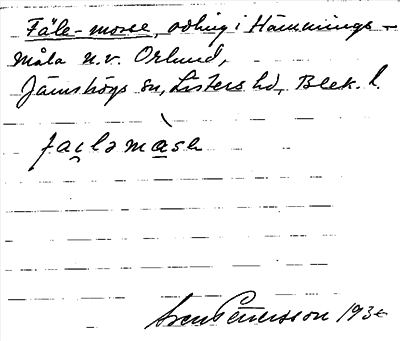 Fäle-mosse, odling i Hämmings-
måla n.v. Orlund,
Jämshögs sn, Listers hd, Blek. l.
Sven Petersson 193